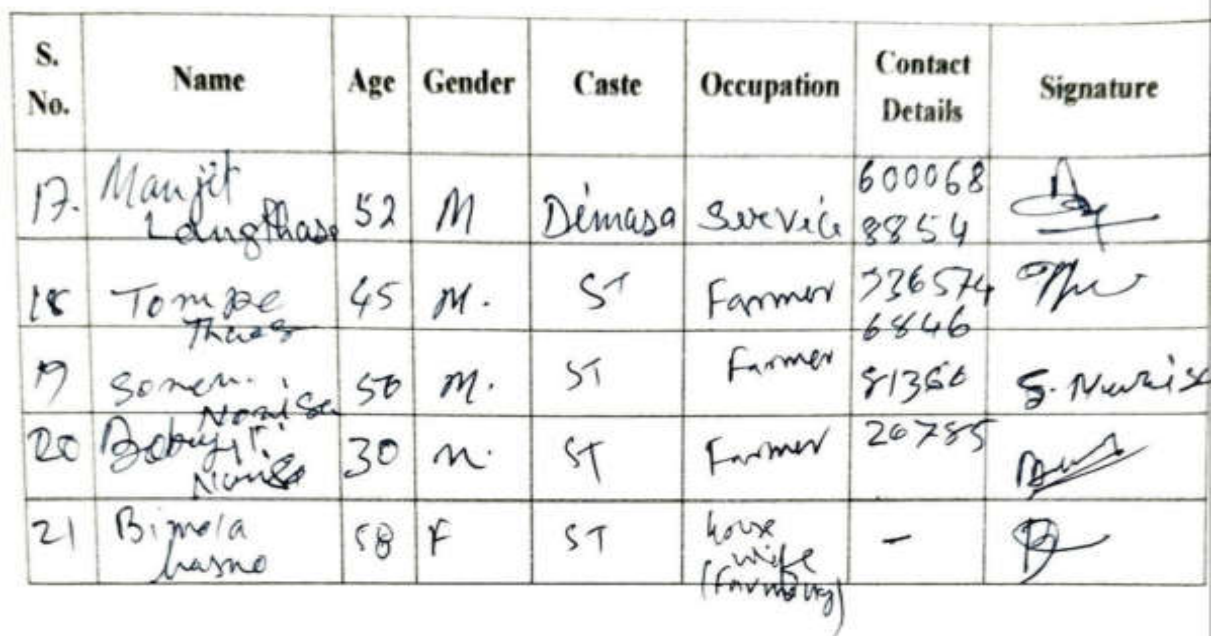 S. No. Name Age Gender Caste Occupation Contact Details Signature
17. Manjit Langthasa 52 M Dimasa Service 600068 8854
18 45 M. ST Farmer 6846
19 Somen. Nunisa 50 M. ST Farmer 81360 S. Nunisa
20 Nunisa 30 M. ST Farmer 26785
21 Bimola hasno 58 F ST house wife (Farming) -